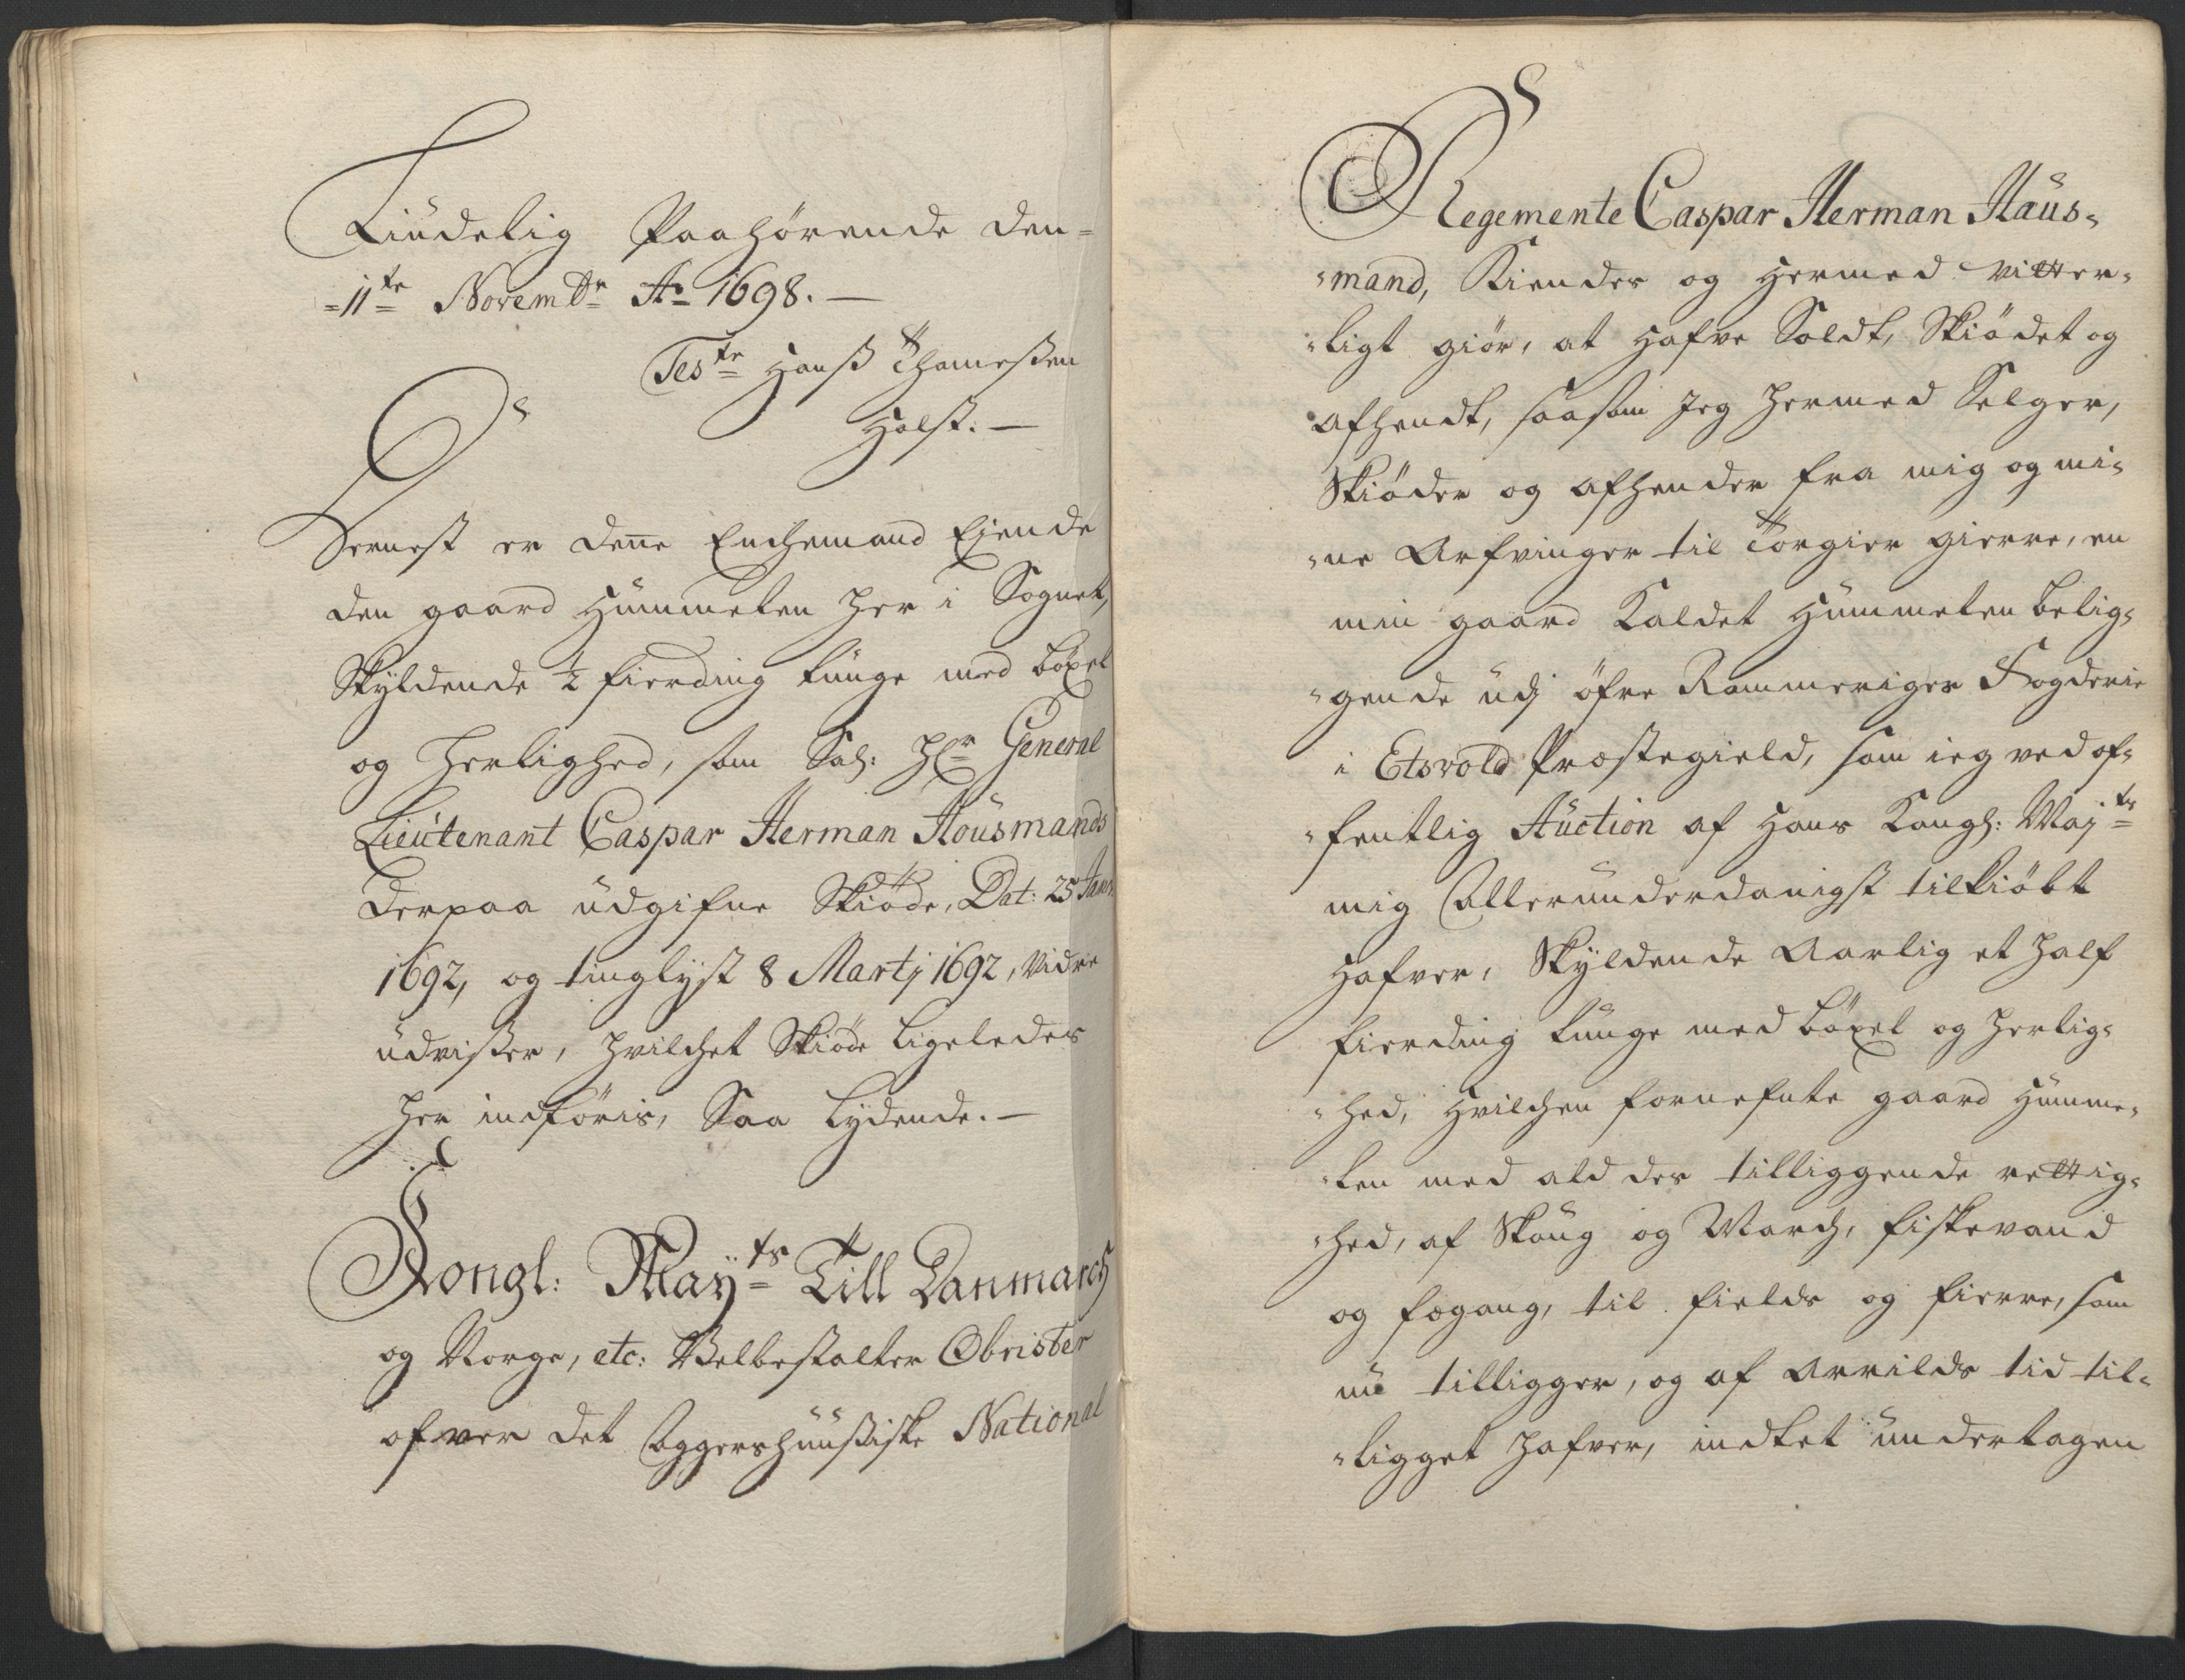 Liudelig Paahørende den=
=11te Novembr Ao 1698. —
Teste Hanß Thameßen
Holst. —
Dernest er denne Enchemand Eiende
den gaard Hummelen her i Sognet,
Skyldende ½ fierding tunge med böxel
og Herlighed, som Sal: Hr General
Lieutenant Caspar Herman Housmands
derpaa udgifne Skiöde, Dat: 25 Janr
1692, og tinglyst 8 Martj 1692, Vidre
udvißer, hvilchet Skiöde Ligeledes
her indföris, Saa Lydende. —
Kongl: Mayts Till Danmarch
og Norge, etc: Velbestalter Obrister
ofver det Aggershuusiske National
Regemente Caspar Herman Haus=
=mand, Kiendes og hermed vitter=
=ligt giör, at hafve Soldt, Skiödet og
afhendt, saasom Jeg hermed Selger,
Skiöder og afhender fra mig og mi=
=ne Arfvinger til Törgier gierre, en
min gaard Kaldet Hummelen belig=
=gende udj öfre Rommeriges Fogderie
i Etsvold Præstegield, som ieg ved of=
=fentlig Auction af Hans Kongl: Majts
mig Allerunderdanigst tilkiöbt
hafver, Skyldende Aarlig et half
fierding tunge med böxel og herlig=
=hed, hvilchen fornefnte gaard Humme=
=len med ald des tilliggende rettig=
=hed, af Skoug og March, fiskevand
og fægang, til fields og fierre, som
nu tilligger, og af Arrilds tid til=
=ligget hafver, indtet undertagen